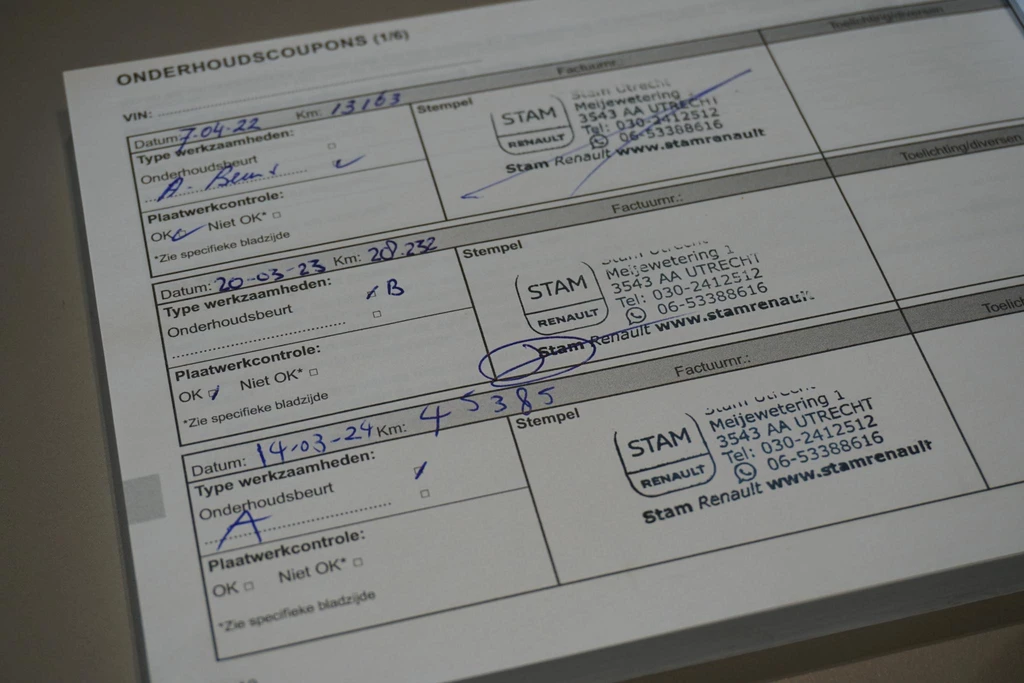 ONDERHOUDSCOUPONS (1/6)
VIN:
Datum: 7-04-22 Km: 13163 Factuurnr.: Toelichting/diversen
Type werkzaamheden:
Onderhoudsbeurt
A-
Plaatwerkcontrole:
OK Niet OK*
*Zie specifieke bladzijde
Stempel
STAM
RENAULT
Stam Utrecht
Meijewetering
3543 AA UTRECHT
Tel: 030-2412512
06-53388616
Stam Renault www.stamrenault
Datum: 20-03-23 Km: 28.232 Factuurnr.: Toelichting/diversen
Type werkzaamheden:
B
Onderhoudsbeurt
Plaatwerkcontrole:
OK Niet OK*
*Zie specifieke bladzijde
Stempel
STAM
RENAULT
Stam Utrecht
Meijewetering 1
3543 AA UTRECHT
Tel: 030-2412512
06-53388616
Stam Renault www.stamrenault.
Datum: 14-03-24 Km: 45385 Factuurnr.: Toelich
Type werkzaamheden:
Onderhoudsbeurt
A
Plaatwerkcontrole:
OK Niet OK*
*Zie specifieke bladzijde
Stempel
STAM
RENAULT
Stam Utrecht
Meijewetering 1
3543 AA UTRECHT
Tel: 030-2412512
06-53388616
Stam Renault www.stamrenault